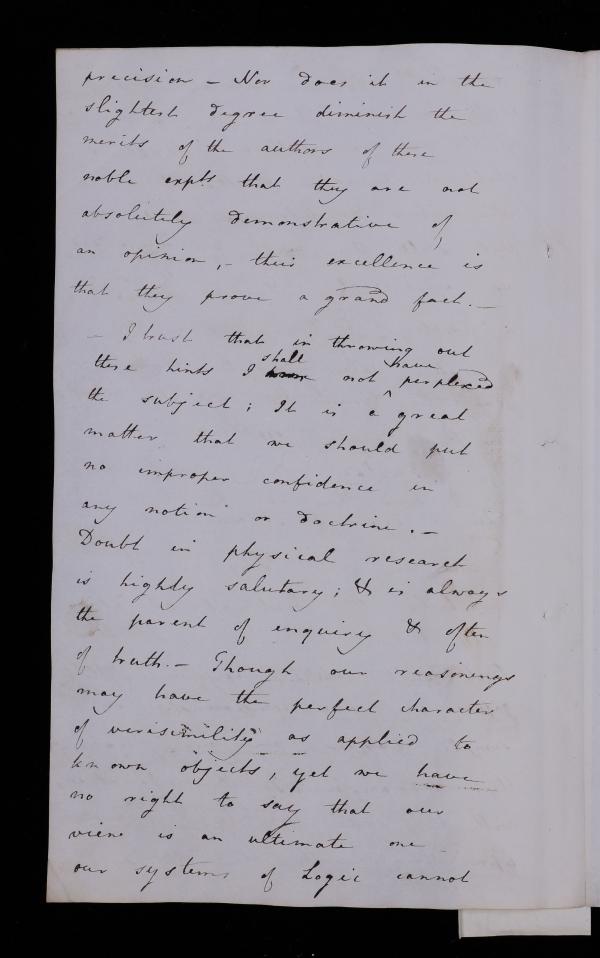 precision – Nor does it in the
slightest degree diminish the
merits of the authors of these
noble expts that they are not
absolutely demonstrative of
an opinion, – their excellence is
that they prove a grand fact. –
– I trust that in throwing out
these hints I shall not have perplexed
the subject; It is a great
matter that we should put
no improper confidence in
any notion or doctrine. –
Doubt in physical research
is highly salutary; & is always
the parent of enquiry & often
of truth. – Though our reasonings
may have the perfect character
of verisimility as applied to
known objects, yet we have
no right to say that our
view is an ultimate one
our systems of Logic cannot